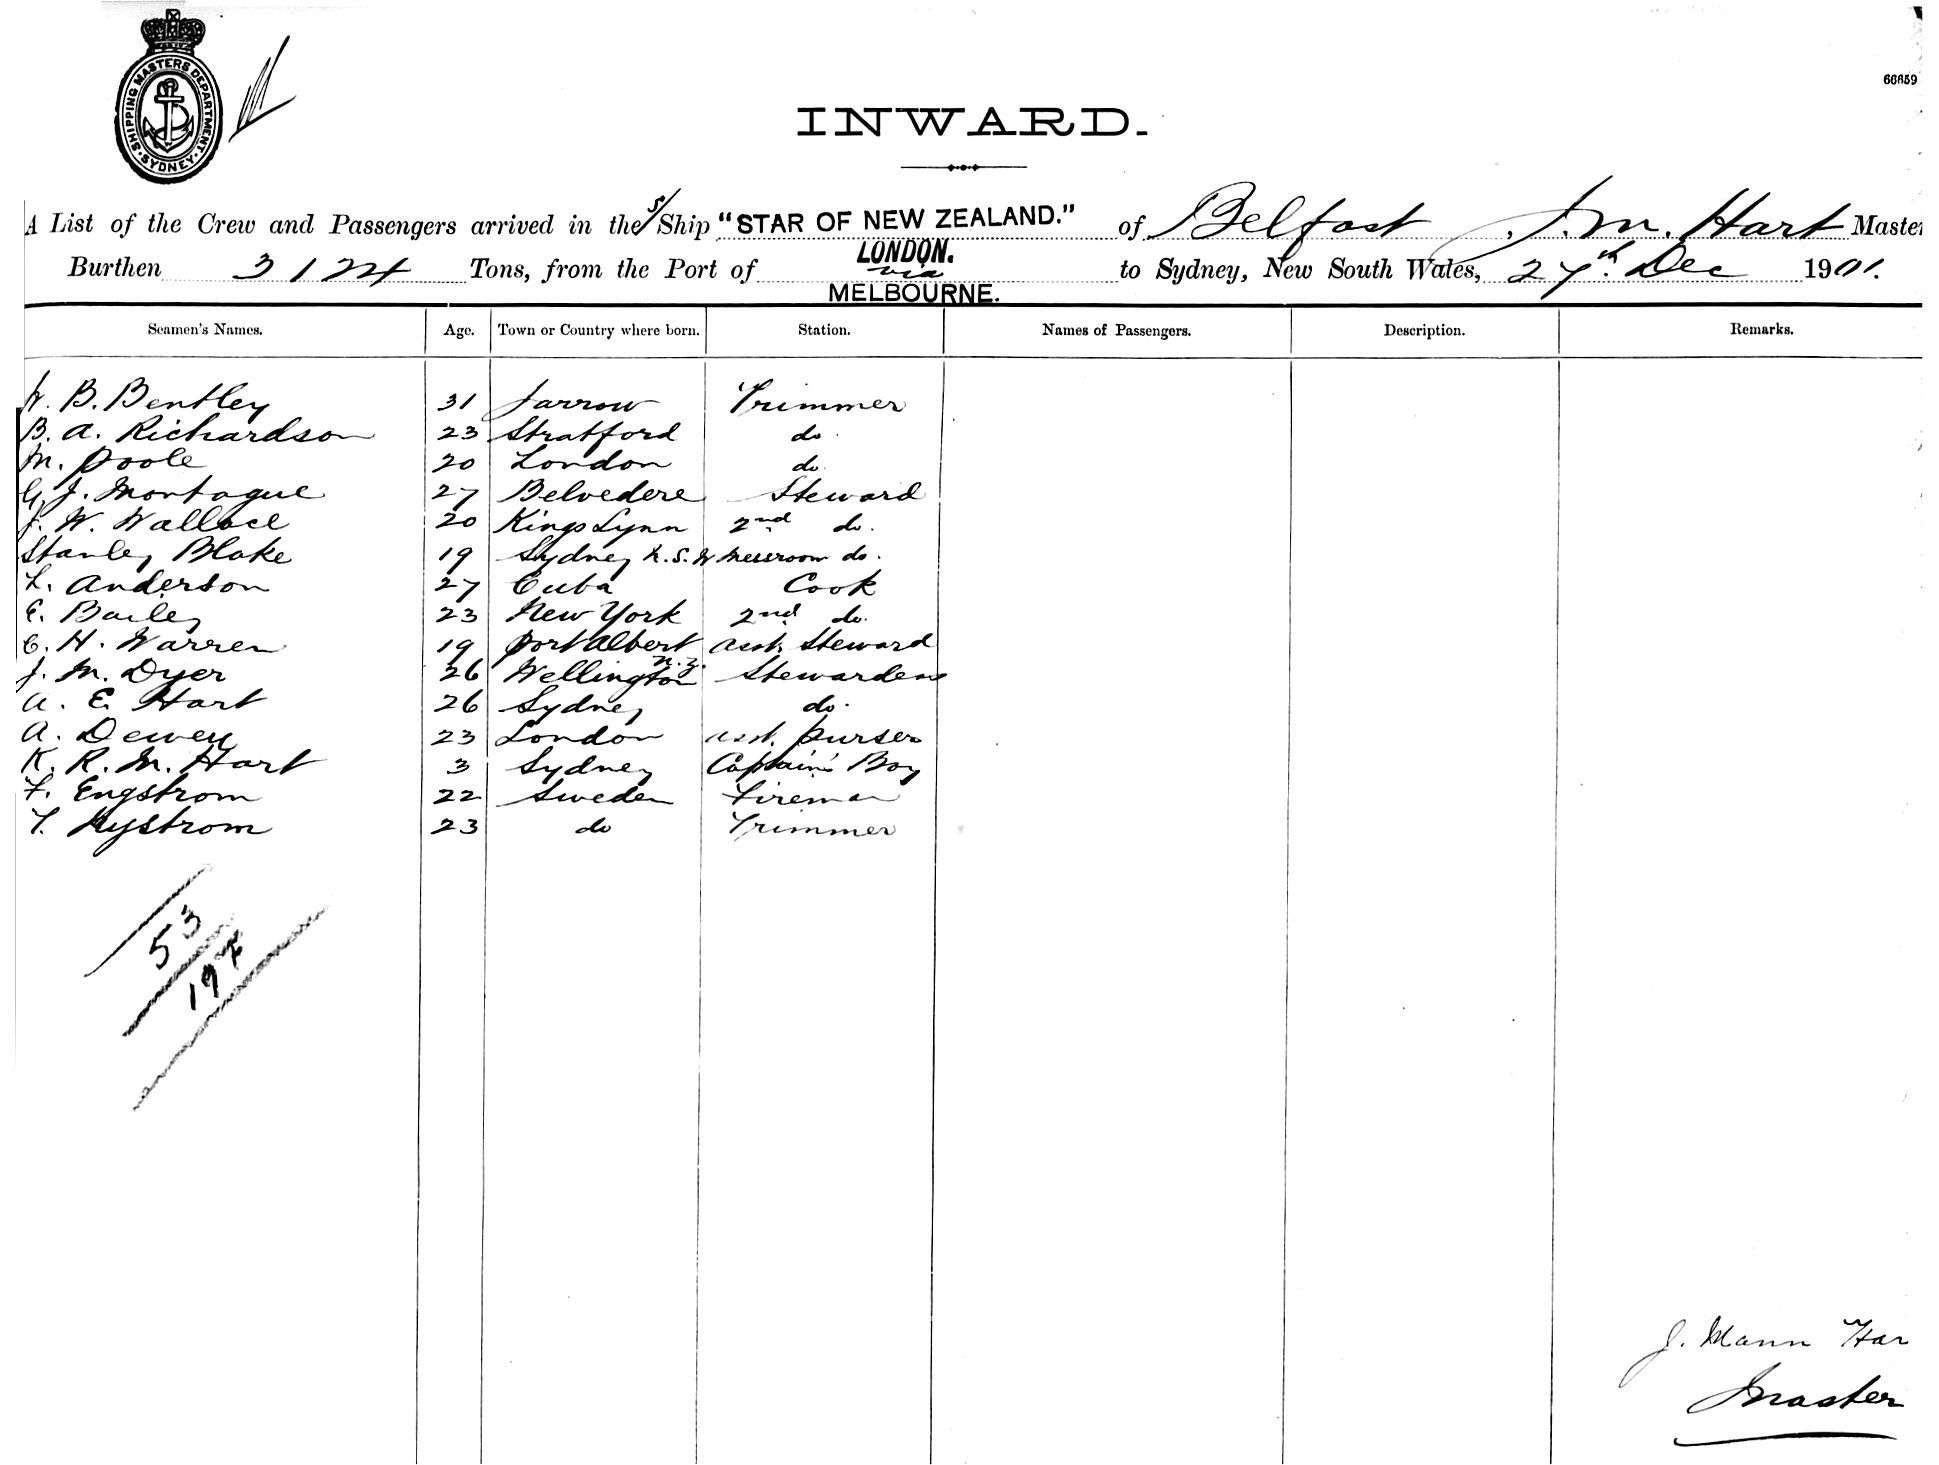 SHIPPING MASTERS DEPARTMENT
SYDNEY
66659
INWARD.
A List of the Crew and Passengers arrived in the S/Ship "STAR OF NEW ZEALAND." of Belfast, J. M. Hart Master
Burthen 3124 Tons, from the Port of LONDON. via MELBOURNE. to Sydney, New South Wales, 27th Dec 1901.
Seamen's Names. Age. Town or Country where born. Station. Names of Passengers. Description. Remarks.
W. B. Bentley 31 Jarrow Trimmer
B. A. Richardson 23 Stratford do
M. Poole 20 London do
G. J. Montague 27 Belvedere Steward
J. W. Wallace 20 Kings Lynn 2nd do.
Stanley Blake 19 Sydney N.S.W Messroom do.
L. Anderson 27 Cuba Cook
E. Bailey 23 New York 2nd do.
C. H. Warren 19 Port Albert asst. Steward
J. M. Dyer 26 Wellington N.Z. Stewardess
A. E. Hart 26 Sydney do.
A. Dewey 23 London asst. Purser
K. R. M. Hart 3 Sydney Captain's Boy
F. Engstrom 22 Sweden Fireman
T. Nystrom 23 do Trimmer
53
J. Mann Har
Master